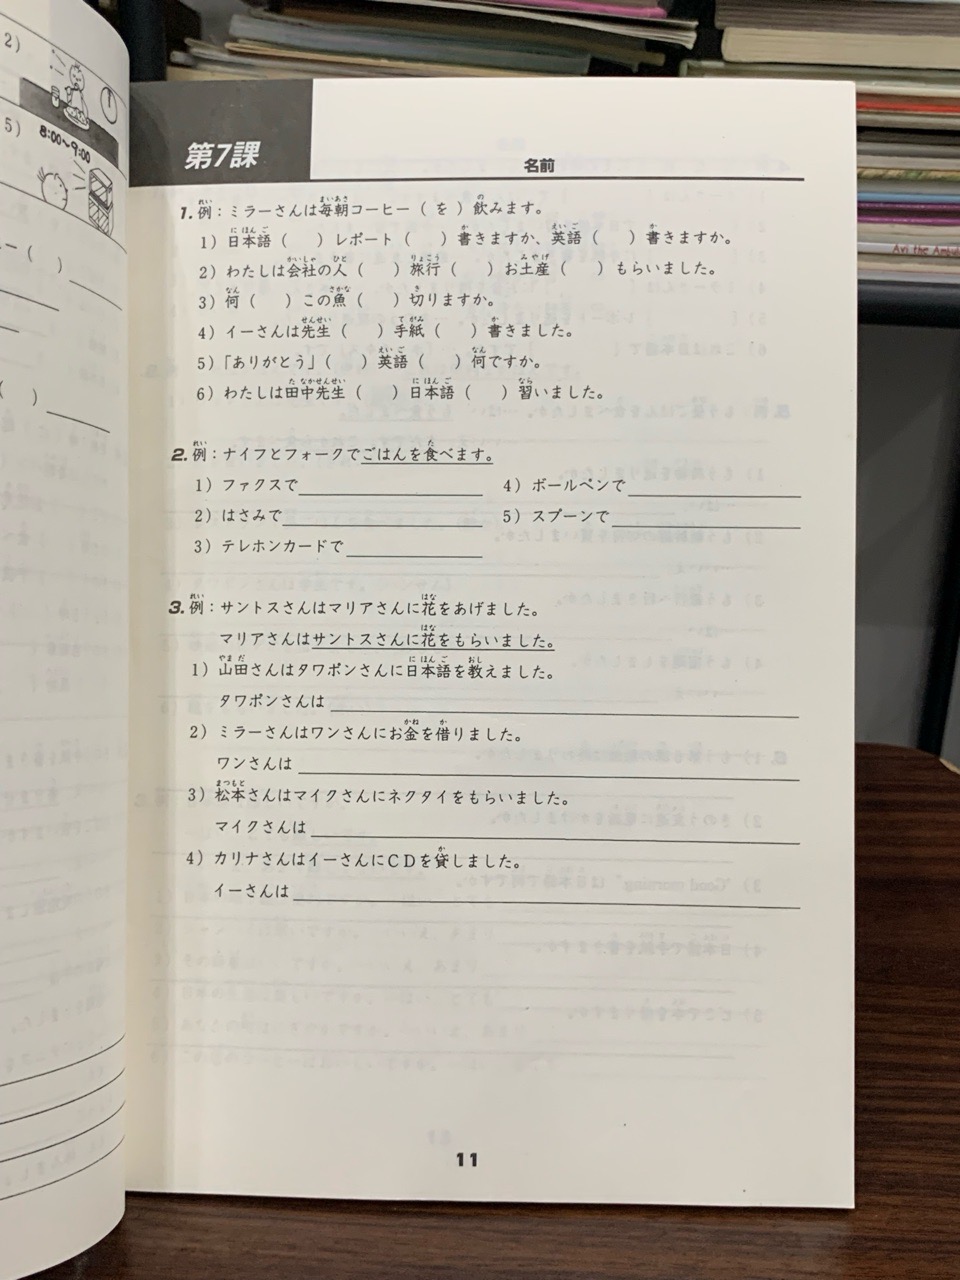 2)
5)
8:00~9:00
第7課
名前
1. 例：ミラーさんは毎朝コーヒー（ を ）飲みます。
1）日本語（　　）レポート（　　）書きますか、英語（　　）書きますか。
2）わたしは会社の人（　　）旅行（　　）お土産（　　）もらいました。
3）何（　　）この魚（　　）切りますか。
4）イーさんは先生（　　）手紙（　　）書きました。
5）「ありがとう」（　　）英語（　　）何ですか。
6）わたしは田中先生（　　）日本語（　　）習いました。
2. 例：ナイフとフォークでごはんを食べます。
1）ファクスで
2）はさみで
3）テレホンカードで
4）ボールペンで
5）スプーンで
3. 例：サントスさんはマリアさんに花をあげました。
マリアさんはサントスさんに花をもらいました。
1）山田さんはタワポンさんに日本語を教えました。
タワポンさんは
2）ミラーさんはワンさんにお金を借りました。
ワンさんは
3）松本さんはマイクさんにネクタイをもらいました。
マイクさんは
4）カリナさんはイーさんにＣＤを貸しました。
イーさんは
11